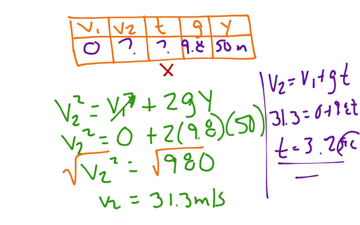 V₁ V₂ t g y
0 ? ? 9.8 50 m
x
V₂² = V₁² + 2gy
V₂² = 0 + 2(9.8)(50)
√V₂² = √980
V₂ = 31.3 m/s
V₂ = V₁ + gt
31.3 = 0 + 9.8t
t = 3.2 sec